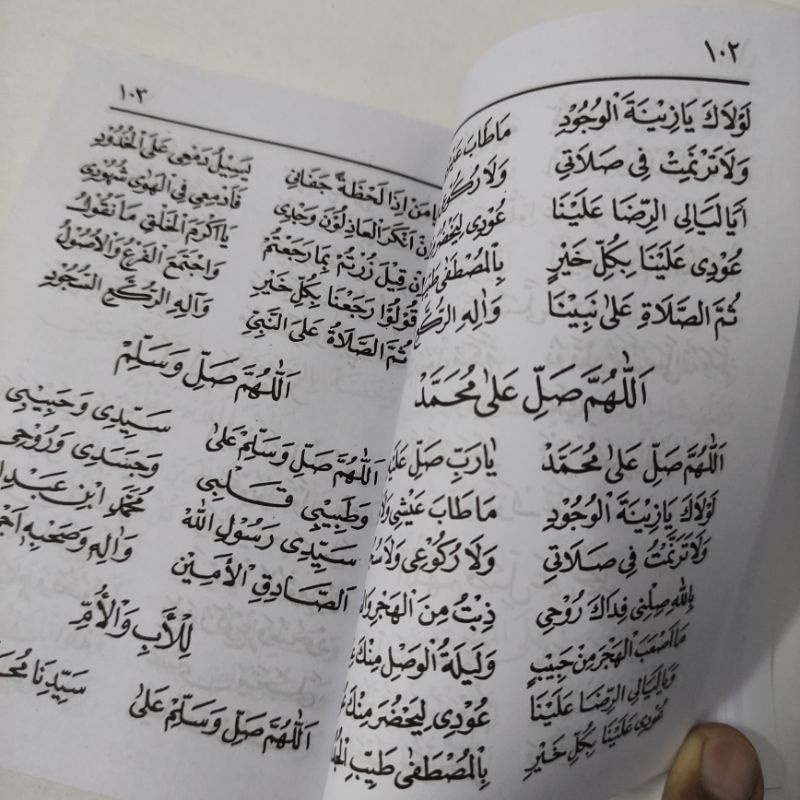 ١٠٢
لَوْلَاكَ يَازِيْنَةَ الْوُجُوْدِ مَاطَابَ
وَلَاتَرَنَّمْتُ فِى صَلَاتِي وَلَا رُكُوْ
اَيَالَيَالِى الرِّضَا عَلَيْنَا عُوْدِى لِيَخْضَرَّ
عُوْدِى عَلَيْنَا بِكُلِّ خَيْرٍ بِالْمُصْطَفٰى
ثُمَّ الصَّلَاةِ عَلىٰ نَبِيْنَا وَاٰلِهِ الرُّكَّعِ
اَللّٰهُمَّ صَلِّ عَلىٰ مُحَمَّدْ
اَللّٰهُمَّ صَلِّ عَلىٰ مُحَمَّدْ يَارَبِّ صَلِّ
لَوْلَاكَ يَازِيْنَةَ الْوُجُوْدِ مَاطَابَ عَيْشِى
وَلَاتَرَنَّمْتُ فِى صَلَاتِي وَلَا رُكُوْعِى
بِاللهِ صِلْنِى فِدَاكَ رُوْحِى ذِبْتُ مِنَ الْهَجْرِ
مَااَصْعَبَ الْهَجْرَ مِنْ حَبِيْبٍ وَلَيْلَةُ الْوَصْلِ مِنْكَ
وَيَالَيَالِى الرِّضَا عَلَيْنَا عُوْدِى لِيَخْضَرَ مِنْكَ
عُوْدِى عَلَيْنَا بِكُلِّ خَيْرٍ بِالْمُصْطَفٰى طَيِّبِ
١٠٣
مَنْ اِذَا لَحْظَةً جَفَانِي يَسِيْلُ دَمْعِى عَلَى الْخُدُوْدِ
اَنْكَرَ الْعَاذِلُوْنَ وَجْدِى فَاَدْمُعِي فِى الْهَوٰى شُهُوْدِى
اِنْ قِيْلَ زُرْتُمْ بِمَا رَجَعْتُمْ يَااَكْرَمَ الْخَلْقِ مَانَقُوْلُ
قُوْلُوْا رَجَعْنَا بِكُلِّ خَيْرٍ وَاجْتَمَعَ الْفَرْعُ وَالْاُصُوْلُ
ثُمَّ الصَّلَاةُ عَلَى النَّبِيِّ وَاٰلِهِ الرُّكَّعِ السُّجُوْدِ
اَللّٰهُمَّ صَلِّ وَسَلِّمْ
اَللّٰهُمَّ صَلِّ وَسَلِّمْ عَلىٰ سَيِّدِى وَحَبِيْبِى
وَطَبِيْبِى قَلْبِى وَجَسَدِى وَرُوْحِى
سَيِّدِى رَسُوْلِ اللهْ مُحَمَّدِ ابْنِ
اَلصَّادِقِ الْاَمِيْنِ وَاٰلِهِ وَصَحْبِهِ
لِلْأَبِ وَالْأُمِّ
اَللّٰهُمَّ صَلِّ وَسَلِّمْ عَلىٰ سَيِّدِنَا